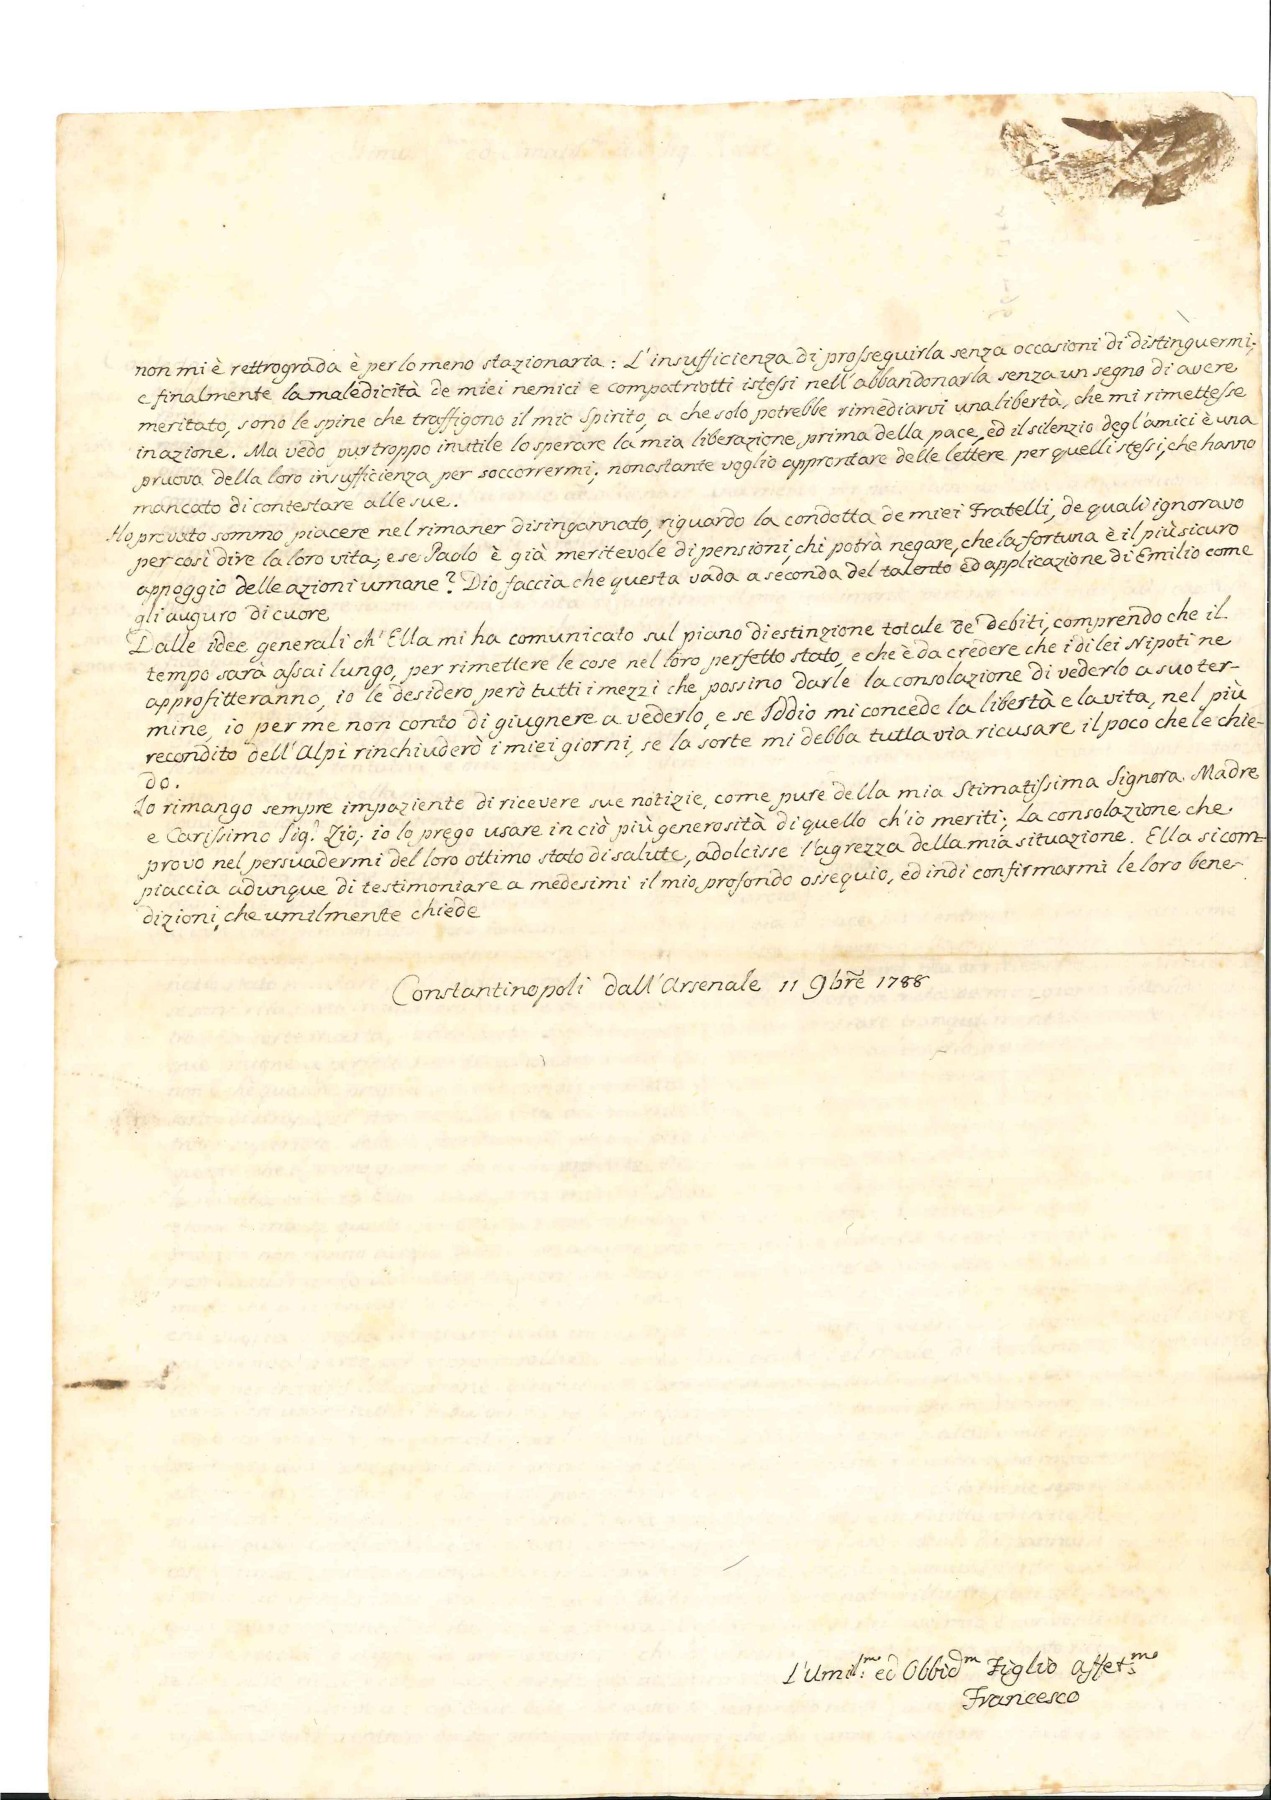 non mi è rettrograda è per lo meno stazionaria: L'insufficienza di prosseguirla senza occasioni di distinguermi;
e finalmente la maledicità de miei nemici e compatriotti istessi nell'abbandonarla senza un segno di avere
meritato, sono le spine che traffigono il mio Spirito, a che solo potrebbe rimediarvi una libertà, che mi rimettesse
in azione. Ma vedo purtroppo inutile lo sperare la mia liberazione prima della pace, ed il silenzio degl'amici è una
pruova della loro insufficienza per soccorrermi; nonostante voglio approntare delle lettere per quelli stessi, che hanno
mancato di contestare alle sue.
Ho provato sommo piacere nel rimaner disingannato, riguardo la condotta de miei Fratelli, de quali ignoravo
per così dire la loro vita; e se Paolo è già meritevole di pensioni, chi potrà negare, che la fortuna è il più sicuro
appoggio delle azioni umane? Dio faccia che questa vada a seconda del talento ed applicazione di Emilio come
gli auguro di cuore
Dalle idee generali ch'Ella mi ha comunicato sul piano di estinzione totale de' debiti, comprendo che il
tempo sarà assai lungo, per rimettere le cose nel loro perfetto stato, e che è da credere che i di lei Nipoti ne
approfitteranno, io le desidero però tutti i mezzi che possino darle la consolazione di vederlo a suo ter-
mine, io per me non conto di giugnere a vederlo, e se Iddio mi concede la libertà e la vita, nel più
recondito dell'Alpi rinchiuderò i miei giorni, se la sorte mi debba tutta via ricusare il poco che le chie-
do.
Io rimango sempre impaziente di ricevere sue notizie, come pure della mia Stimatissima Signora Madre
e Carissimo Sig.r Zio; io lo prego usare in ciò più generosità di quello ch'io meriti; la consolazione che
provo nel persuadermi del loro ottimo stato di salute, adolcisse l'agrezza della mia situazione. Ella si com-
piaccia adunque di testimoniare a medesimi il mio profondo ossequio, ed indi confirmarmi le loro bene-
dizioni, che umilmente chiede
Constantinopoli dall'Arsenale 11 9bre 1788
L'Umil.mo ed Obbid.m Figlio affet.mo
Francesco